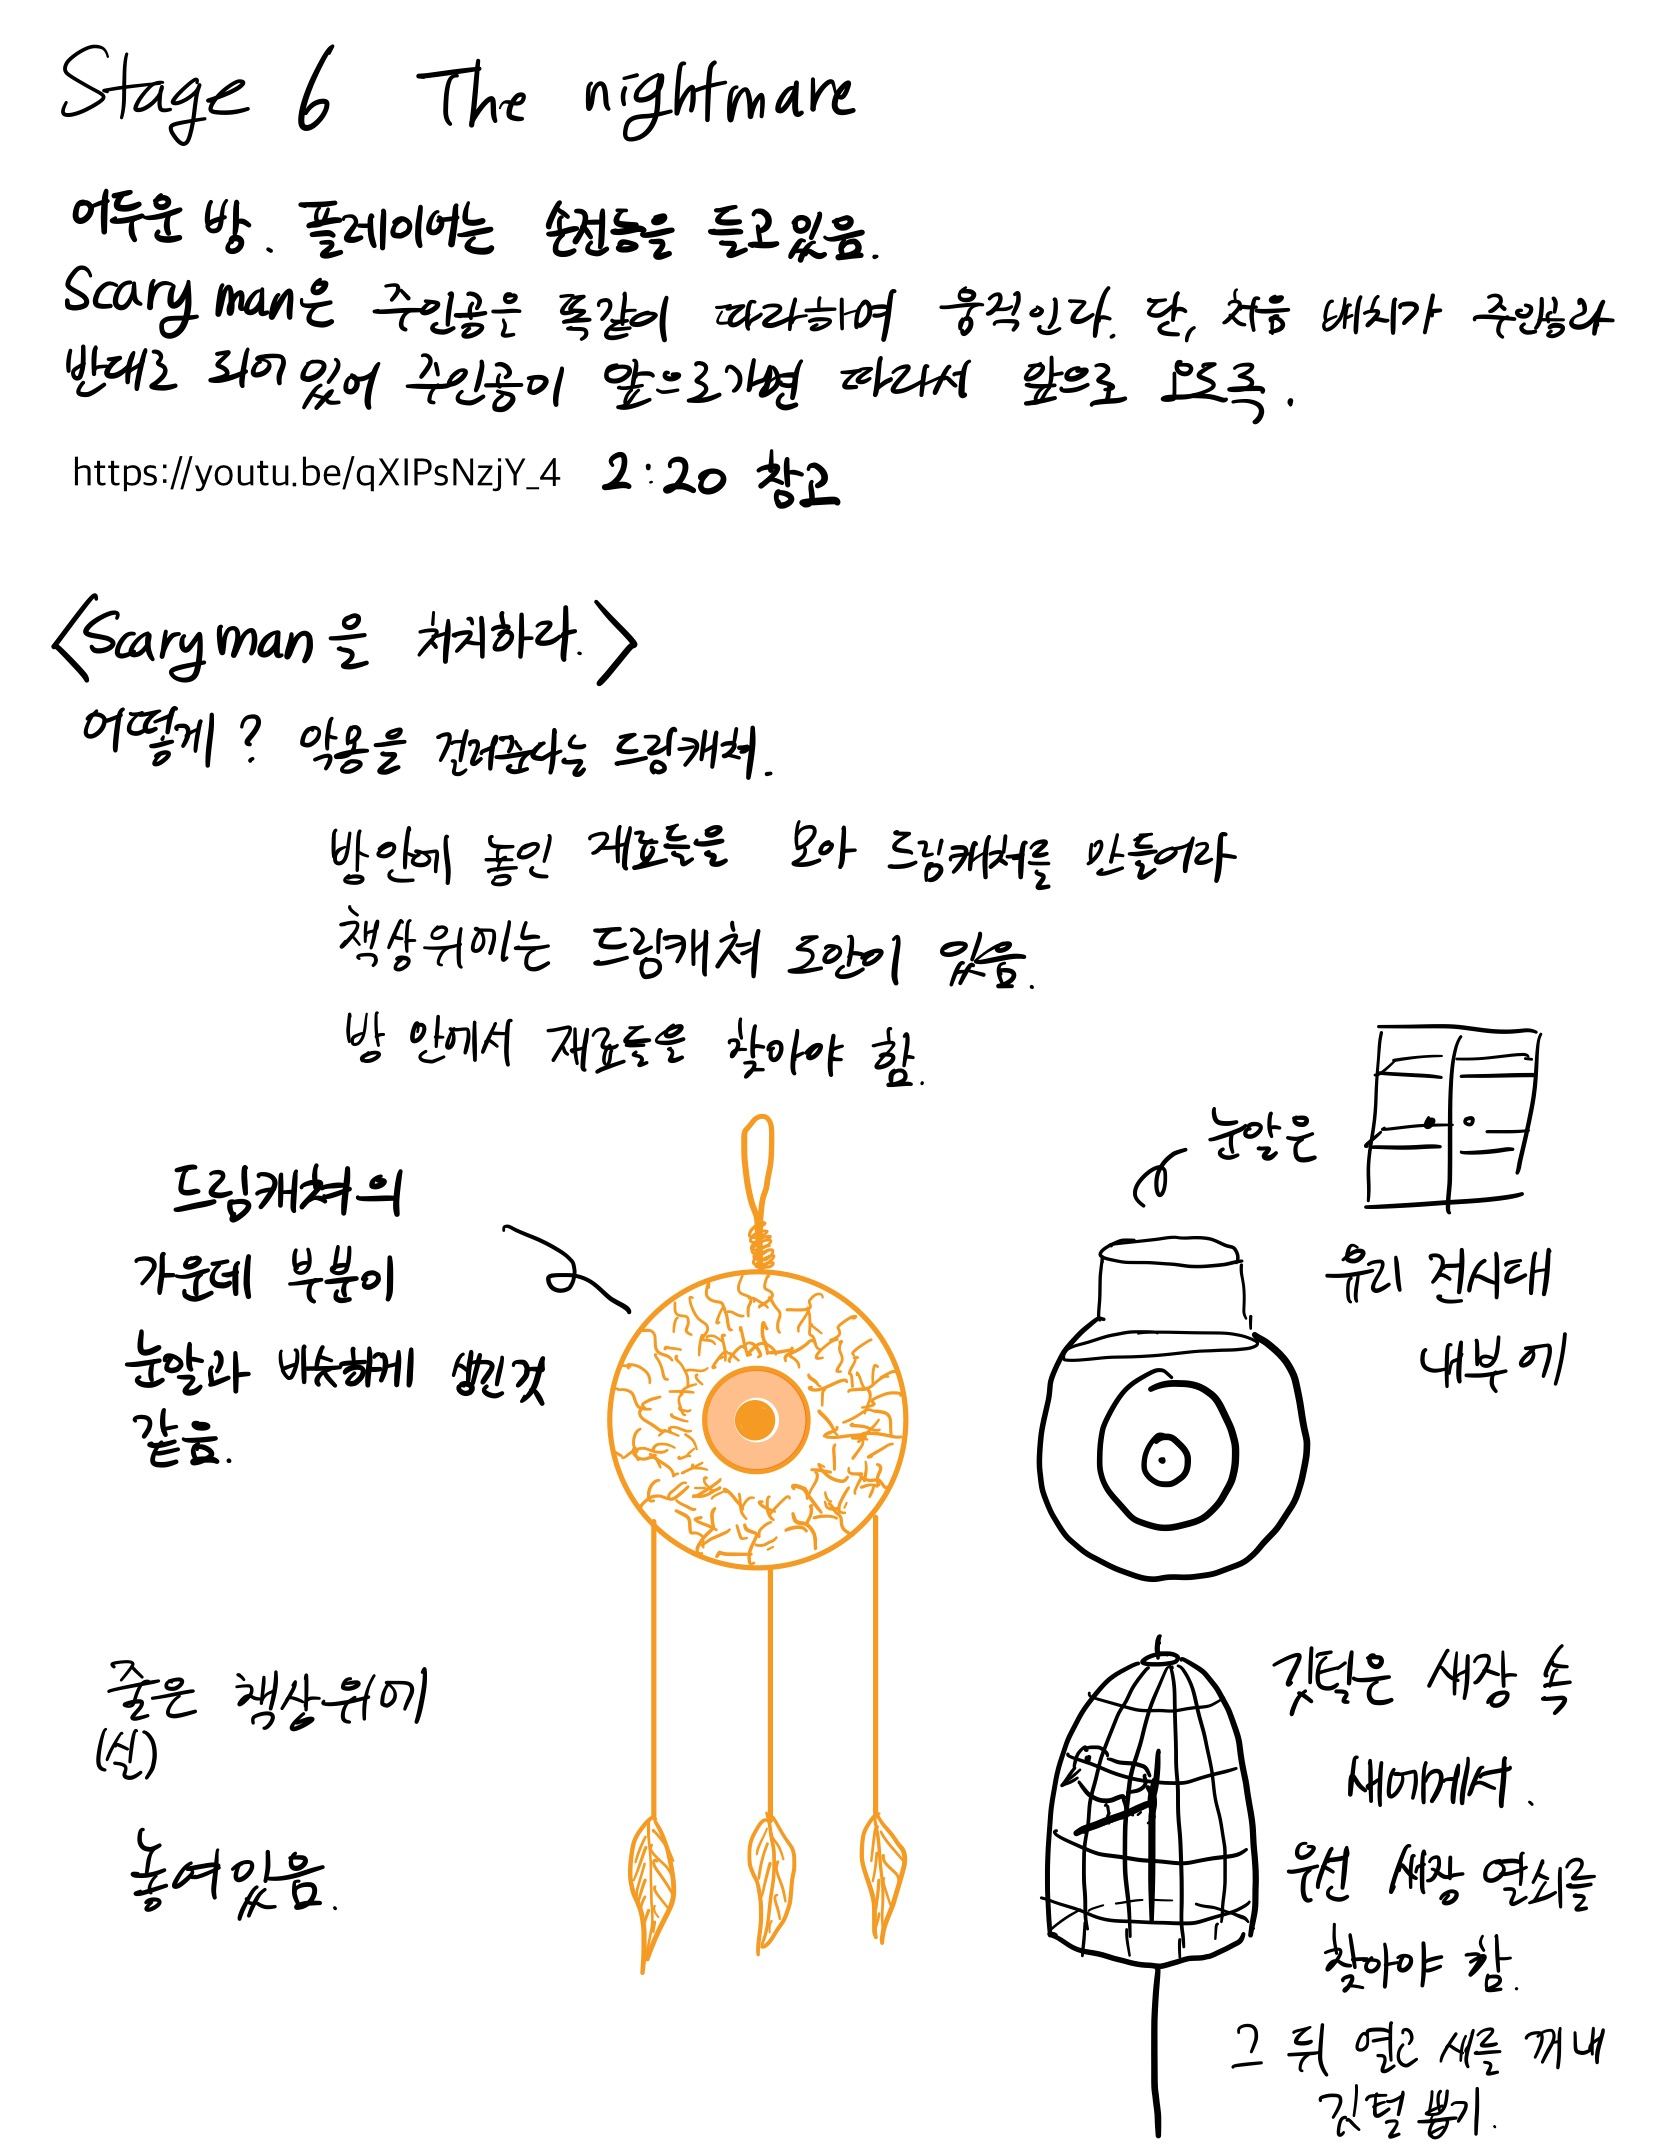 Stage 6 The nightmare
어두운 방. 플레이어는 손전등을 들고있음.
Scary man은 주인공은 똑같이 따라하며 움직인다. 단, 처음 배치가 주인공과
반대로 되어있어 주인공이 앞으로가면 따라서 앞으로 오도록.
https://youtu.be/qXIPsNzjY_4 2:20 참고
<Scary man을 처치하라.>
어떻게? 악몽을 걸러준다는 드림캐쳐.
방안에 놓인 재료들을 모아 드림캐쳐를 만들어라
책상위에는 드림캐쳐 도안이 있음.
방 안에서 재료들을 찾아야 함.
드림캐쳐의
가운데 부분이
눈알과 비슷하게 생긴것
같음.
눈알은
유리 전시대
내부에
줄은 책상위에
(실)
놓여있음.
깃털은 새장 속
새에게서.
우선 새장 열쇠를
찾아야 함.
그 뒤 열고 새를 꺼내
깃털 뽑기.